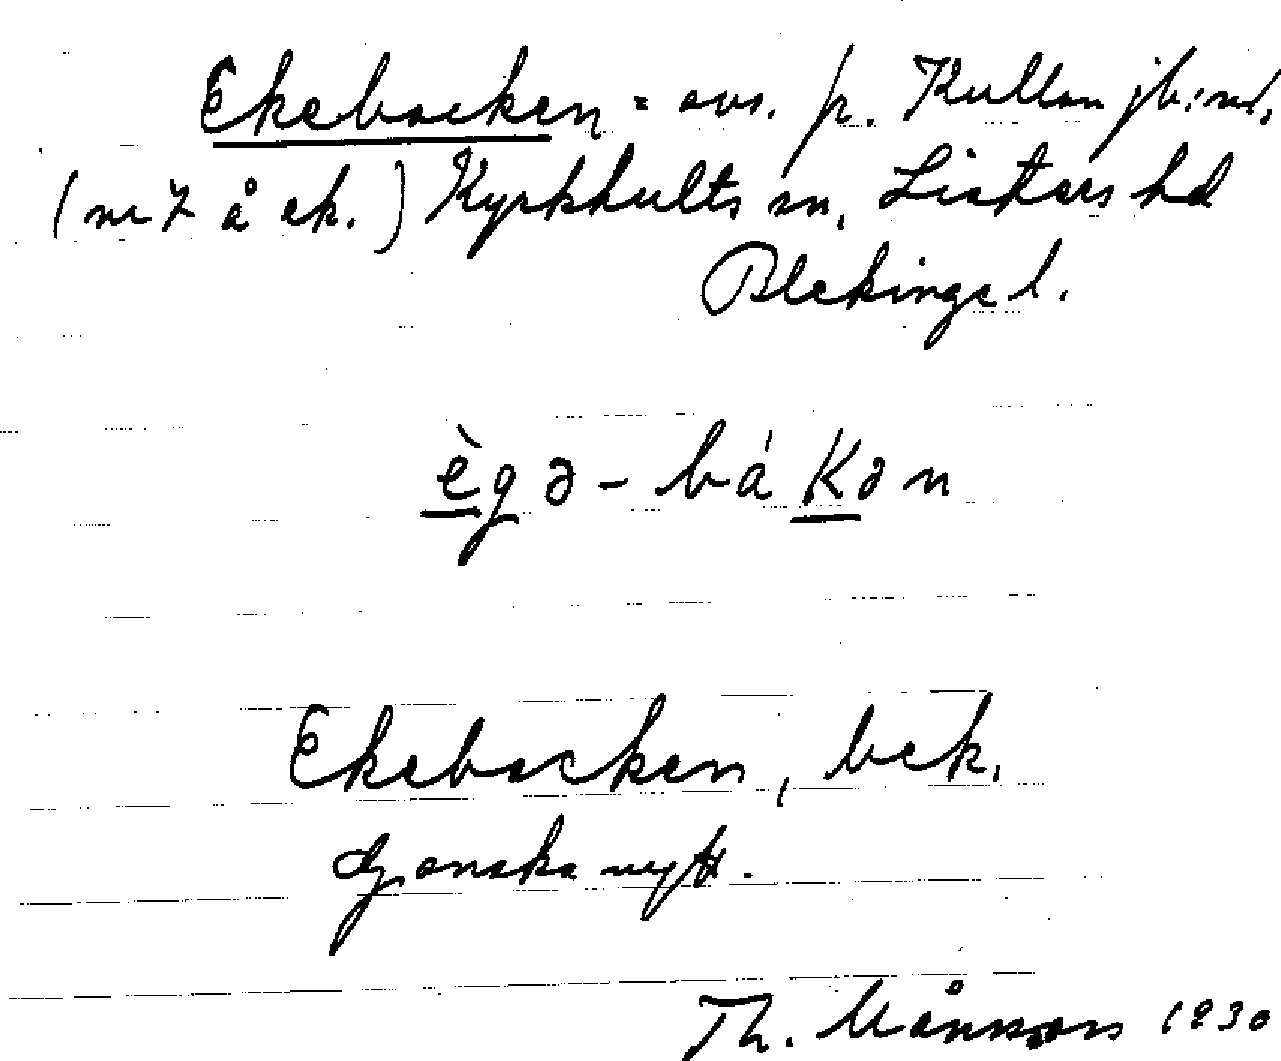 Ekebacken = avs. fr. Kullan jb:nr 1,
(nr 7 å ek.) Kyrkhults sn, Listers hd
Blekinge l.
ègə - bá Kən
Ekebacken, bek.
Ganska nytt.
Th. Månsson 1930